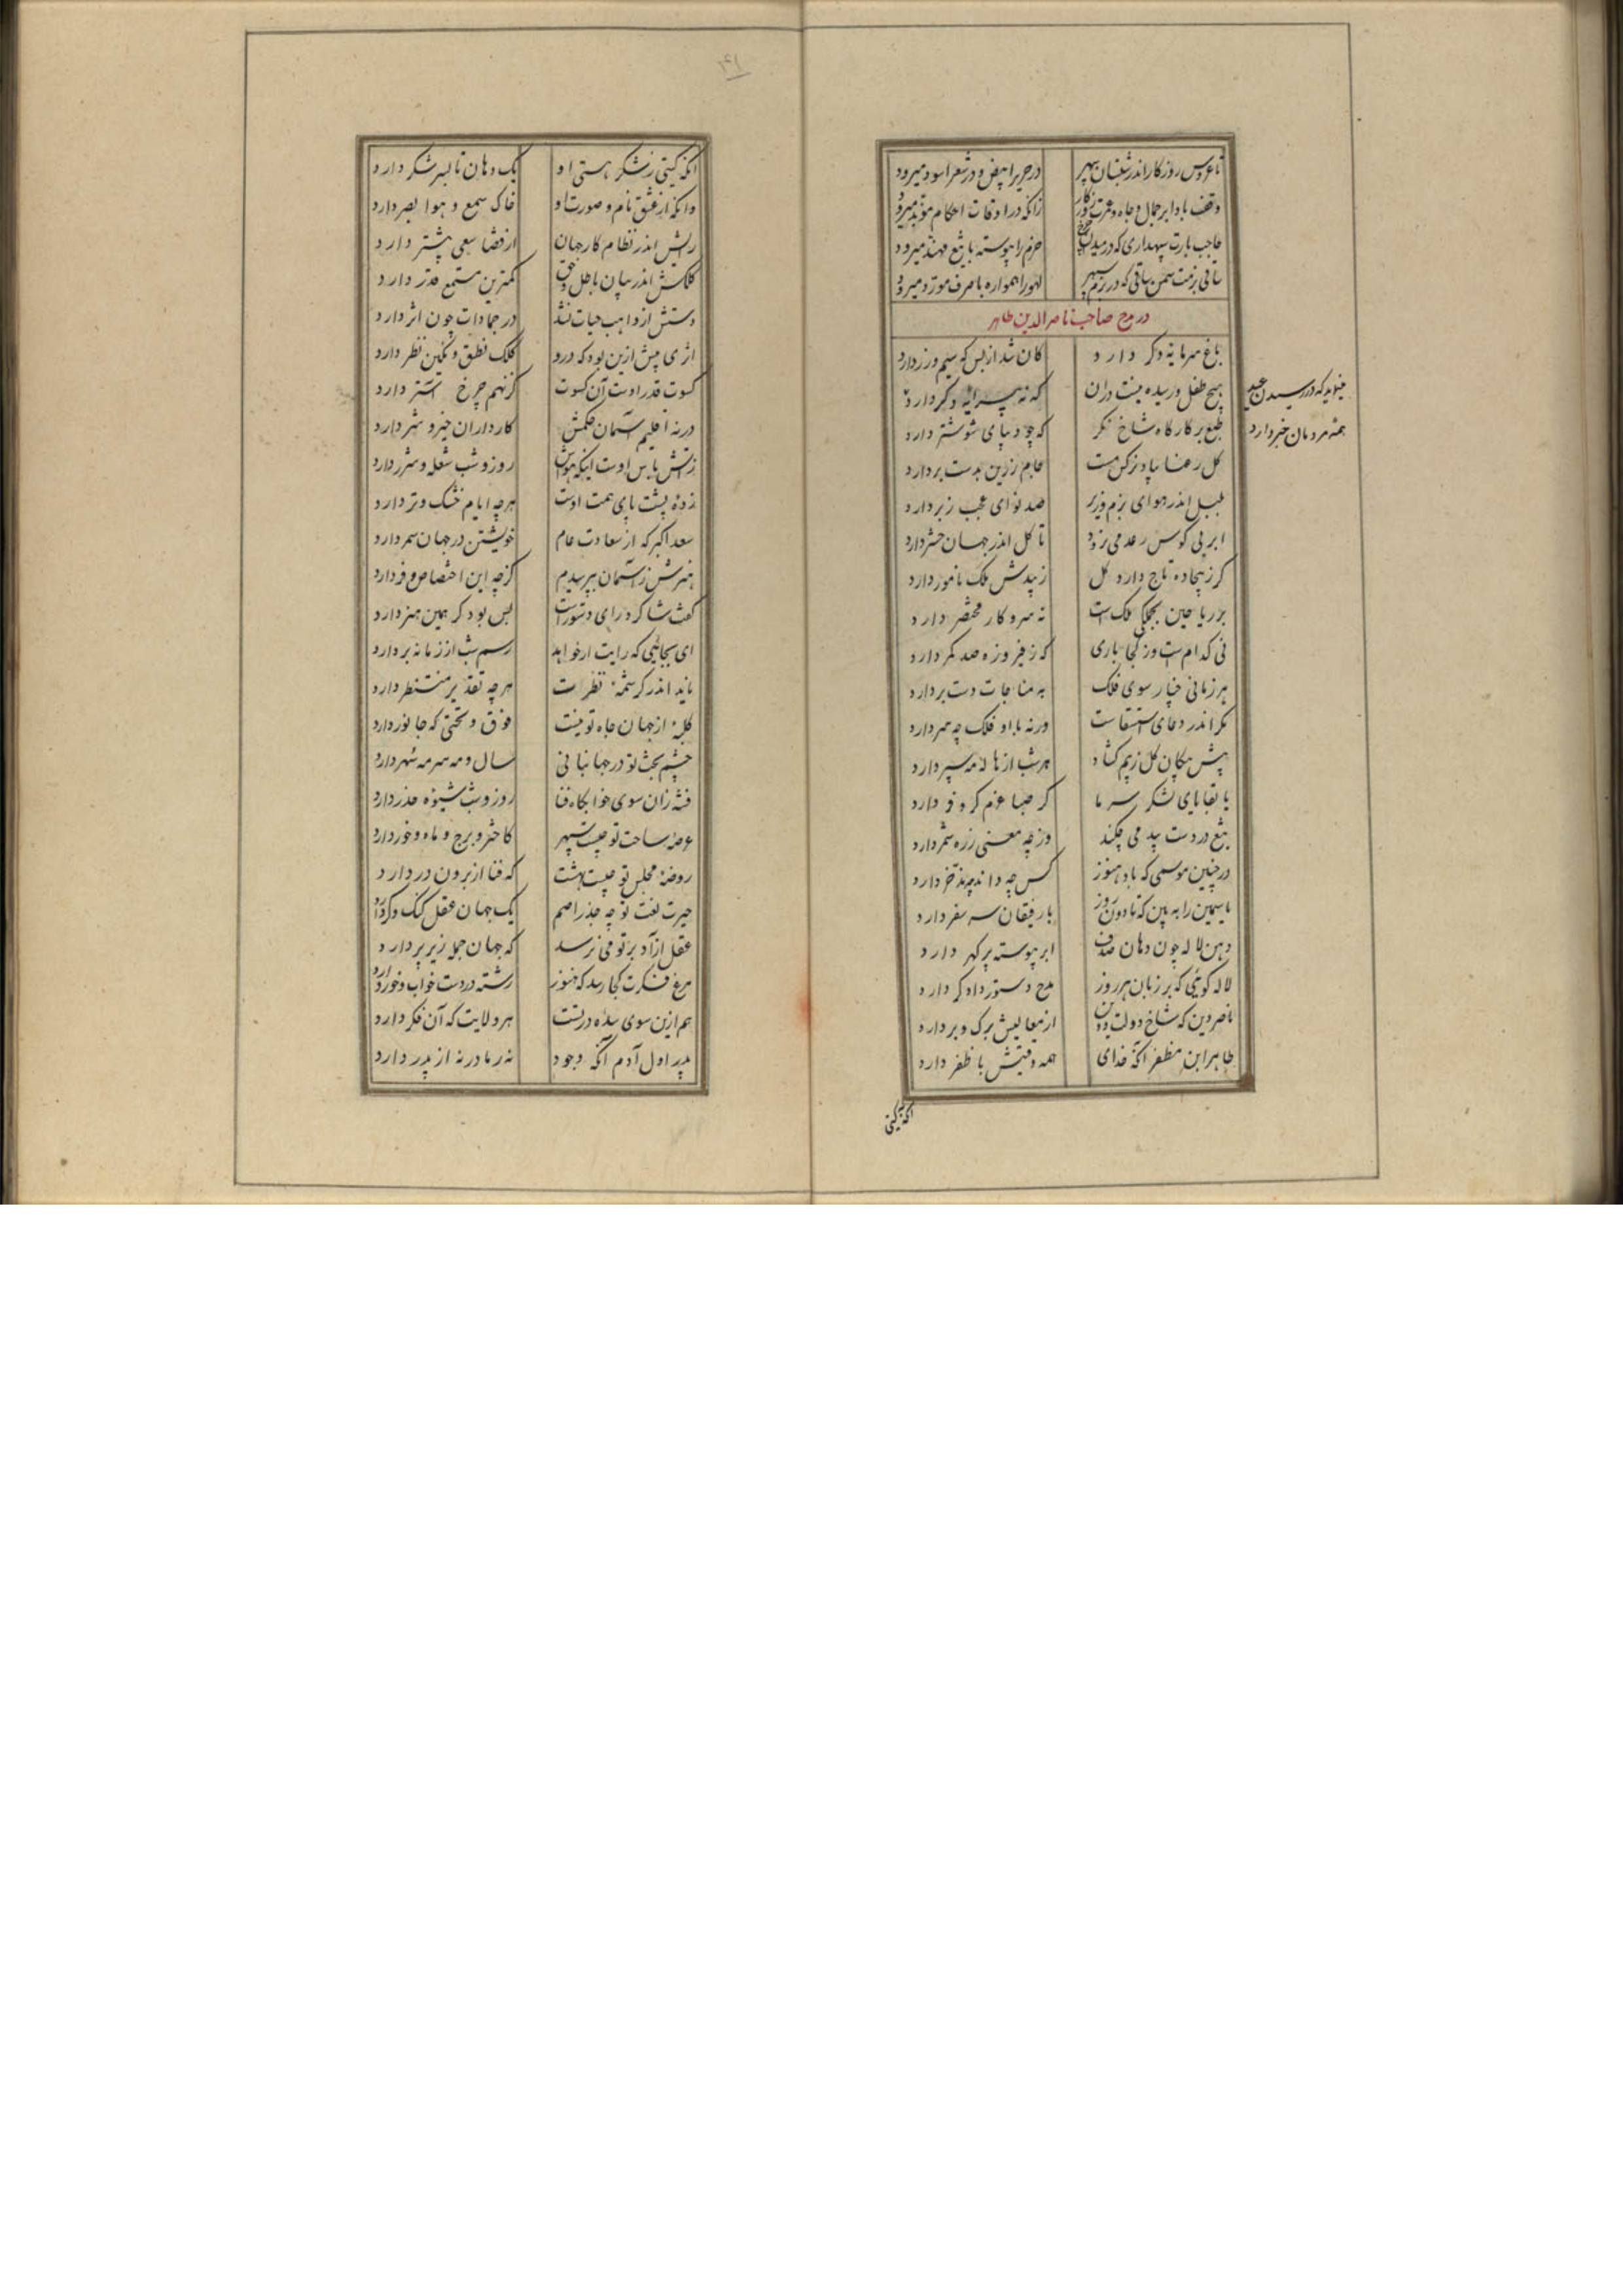 تا عروس روزکار اندر شبستان سپهر
در حریر ابیض و در شعر اسود میرود
وقف بادا بر جمال و جاه و عمرت روزکار
زانکه در اوقات احکام مؤبد میرود
حاجب بارت سپهداری که در میدان چرخ
حزم را پیوسته با تیغ مهند میرود
ساقی بزمت سمن ساقی که در بزم سپهر
لهو را همواره با صرف مورد میرود
در مدح صاحب ناصر الدین طاهر
باغ سرمایهٔ دکر دارد
کان شد از بس که سیم و زر دارد
هیچ طفل رسیده نیست دران
که نه پیرایهٔ دکر دارد
مینماید که در رسیدن عید
همه مردمان خبر دارد
طبع بر کارکاه شاخ نکر
که چو دیبای شوشتر دارد
کل رعنا بیاد نرکس مست
جام زرین بدست بر دارد
بلبل اندر هوای بزم وزیر
صد نوای عجب ز بر دارد
ابر بی کوس رعد می نرود
تا کل اندر جهان حشر دارد
کر ز بیجاده تاج دارد کل
زیبدش ملک نامور دارد
بر ریاحین بجملکی ملک است
نه سر و کار مختصر دارد
نی کدام است وز کجا باری
که ز فیروزه صد کمر دارد
هر زمانی چنار سوی فلک
به مناجات دست بر دارد
مکر اندر دعای استسقاست
ورنه با او فلک چه سر دارد
پیش پیکان کل ز بیم کشاد
هر شب از هاله مه سپر دارد
با بقایای لشکر سرما
کر صبا عزم کر و فر دارد
تیغ در دست بید می چکند
وز چه معنی زره شمر دارد
در چنین موسمی که باد هنوز
کس چه داند چه مدخر دارد
یاسمین را به بین که تا دو سه روز
با رفیقان سر سفر دارد
دهن لاله چون دهان صدف
ابر پیوسته پر کهر دارد
لاله کوئی که بر زبان هر روز
مدح دستور دادکر دارد
ناصر دین که شاخ دولت و دین
از معالیش برک و بر دارد
طاهر ابن مظفر آنکه خدای
همه وقتیش با ظفر دارد
آنکه کیتی
۱۴۱
آنکه کیتی ز شکر هستی او
یک دهان تا بسر شکر دارد
وانکه از عشق نام و صورت او
خاک سمع و هوا بصر دارد
رایش اندر نظام کار جهان
از قضا سعی بیشتر دارد
کلکش اندر بیان باطل و حق
کمترین مستمع قدر دارد
دستش ار واهب حیات نشد
در جمادات چون اثر دارد
اثری بیش ازین بود که درو
کلک نطق و نکین نظر دارد
کسوت قدر اوست آن کسوت
کز نهم چرخ آستر دارد
در نه اقلیم آسمان حکمش
کارداران خیر و شر دارد
ز آتش باس اوست اینکه هواش
روز و شب شعله و شرر دارد
زده پشت پای همت اوست
هر چه ایام خشک و تر دارد
سعد اکبر که از سعادت عام
خویشتن در جهان سمر دارد
هنرش ز آسمان بپرسیدم
کز چه این اختصاص و فر دارد
کفت شاکرد رای دستور است
بس بود کر همین هنر دارد
ای بجائیی که رایت ار خواهد
رسم شب از زمانه بر دارد
یابد اندر کرشمهٔ نظرت
هر چه تقدیر منتظر دارد
کلبهٔ از جهان جاه تو نیست
فوق و تحتی که جانور دارد
چشم بخت تو در جهانبانی
سال و مه سرمهٔ سهر دارد
فتنه زان سوی خوابکاه فنا
روز و شب شیوهٔ حذر دارد
عرصهٔ ساحت تو چیست سپهر
کاختر و برج و ماه و خور دارد
روضهٔ مجلس تو چیست بهشت
که فنا از برون در دارد
حیرت نعت تو چه جذر اصم
یک جهان عقل کنک و کر دارد
عقل از آد بر تو می نرسد
که جهان جمله زیر پر دارد
مرغ فکرت کجا رسد که هنوز
رشته در دست خواب و خور دارد
هم ازین سوی سدره در تست
هر ولایت که آن فکر دارد
پدر اول آدم آنکه وجود
نه ز مادر نه از پدر دارد